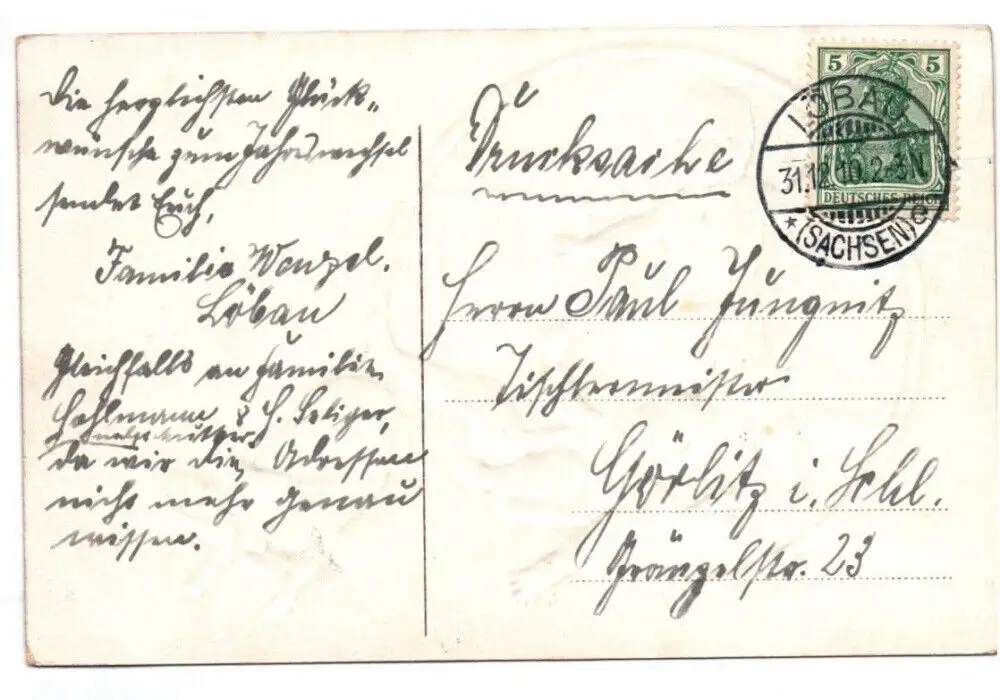 Die herzlichsten Glück-
wünsche zum Jahreswechsel
sendet Euch,
Familie Wenzel.
Löbau
Gleichfalls an Familie
Hohlmann & H. Seliger,
da wir die Adressen
nicht mehr genau
wissen.
Drucksache
Herrn Paul Jungnitz
Tischlermeister
Görlitz i. Schl.
Prängelstr. 23
5 5
DEUTSCHES REICH
LÖBAU
31.12.10.2-3N
*(SACHSEN)c